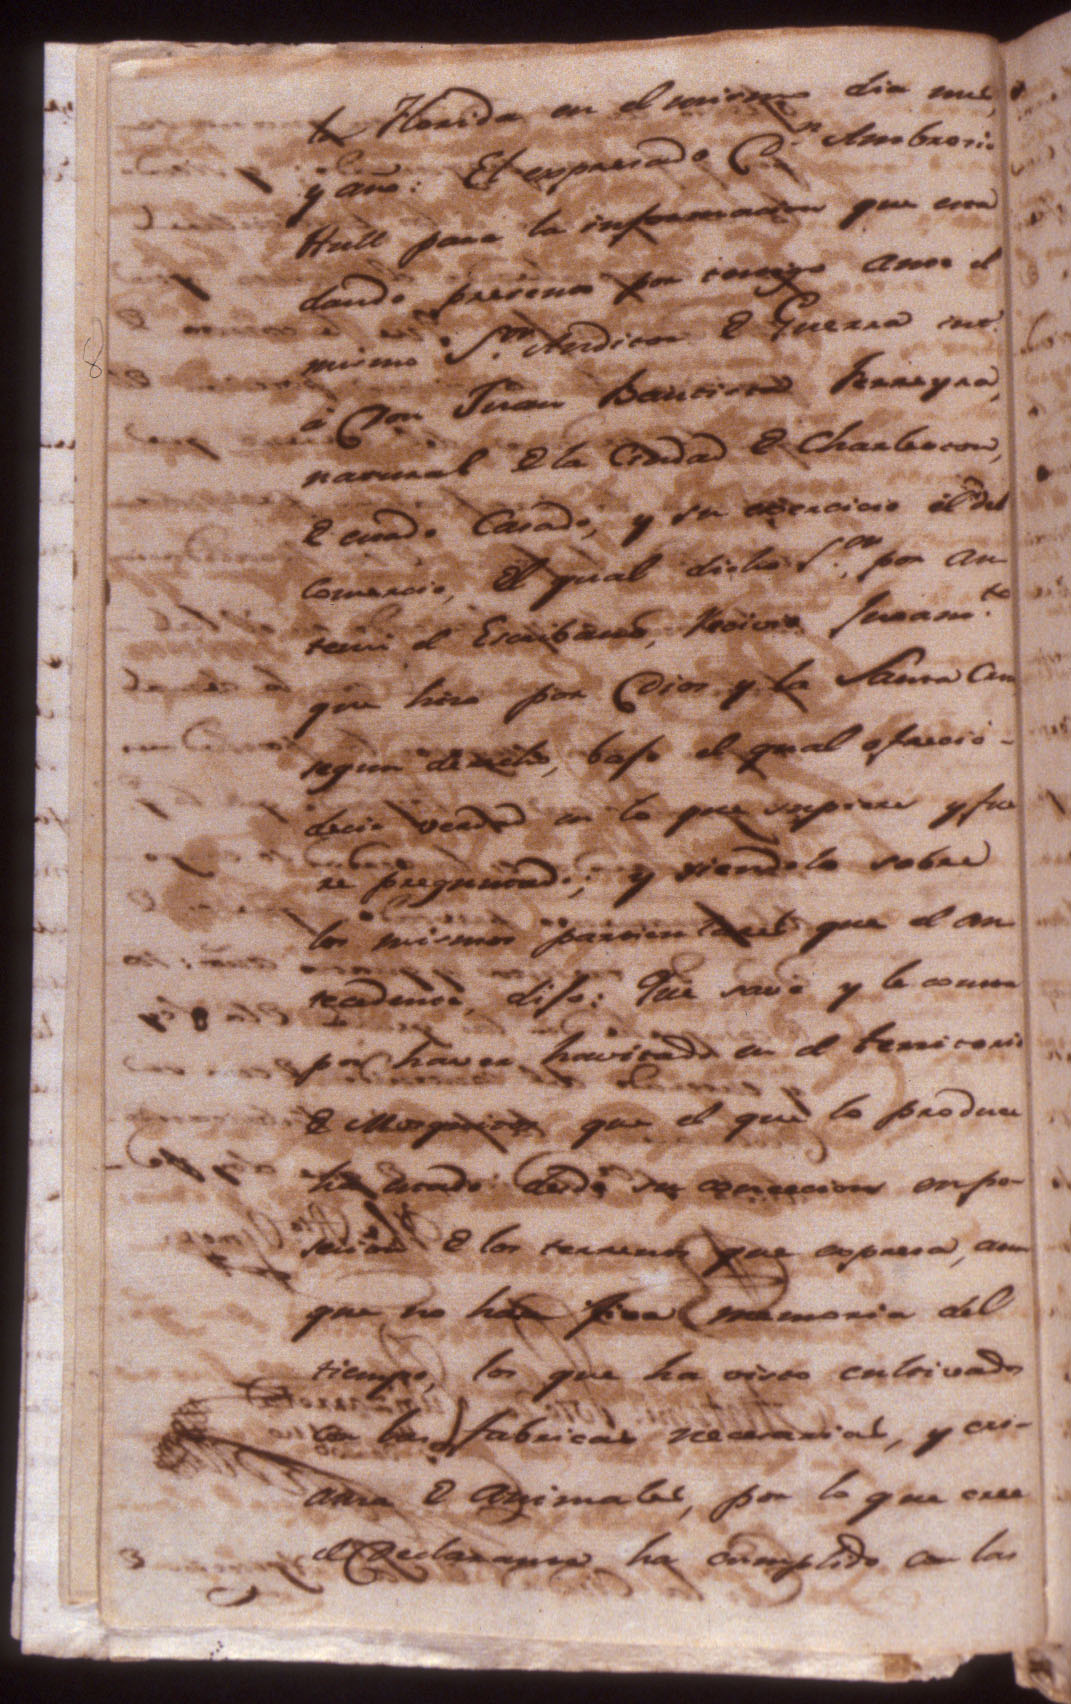 la Florida en el mismo dia mes,
y año: El expresado Dn. Ambrosio
Hull para la informacion que esta
dando presento por testigo ante el
mismo Sor. Auditor de Guerra intº.
á Don Juan Bautista Ferreyra,
natural de la Ciudad de Charleston,
de estado Casado, y su exercicio el del
Comercio, El qual dicho Sor. por an
temi el Escribano, Recivio Juramto.
que hizo por Dios y la Santa Cruz
segun derecho, bajo el qual ofrecio
decir verdad en lo que supiere y fue
re preguntado; y siendolo sobre
los mismos particulares que el an
tecedente, dijo: Que save y le consta
por haver havitado en el territorio
de Mosquitos que el que lo produce
ha estado desde su concecion en po-
secion de los terrenos que expresa, aun
que no hace fixa memoria del
tiempo, los que ha visto cultivados
con las fabricas necesarias, y cri-
anza de animales, por lo que cree
el Declarante ha cumplido con las
8